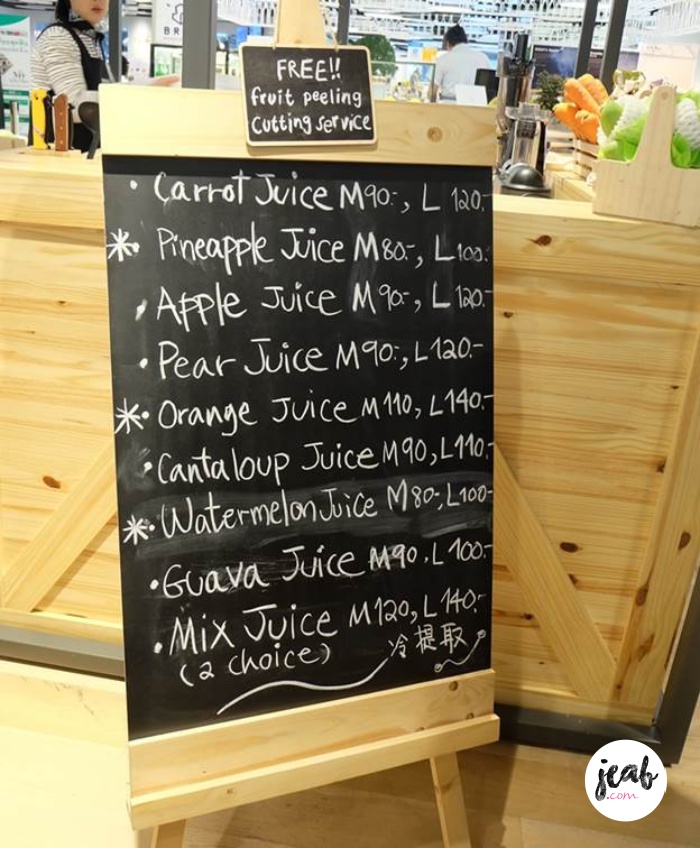 FREE!!
fruit peeling
Cutting service
• Carrot Juice M90.-, L 120.-
* • Pineapple Juice M80.-, L100.-
• Apple Juice M90.-, L120.-
• Pear Juice M90.-, L120.-
* • Orange Juice M110, L140.-
• Cantaloup Juice M90, L110.-
* • Watermelon Juice M80.-, L100-
• Guava Juice M90, L100.-
• Mix Juice M120, L140.-
(2 choice) 冷提取
jeab
.com